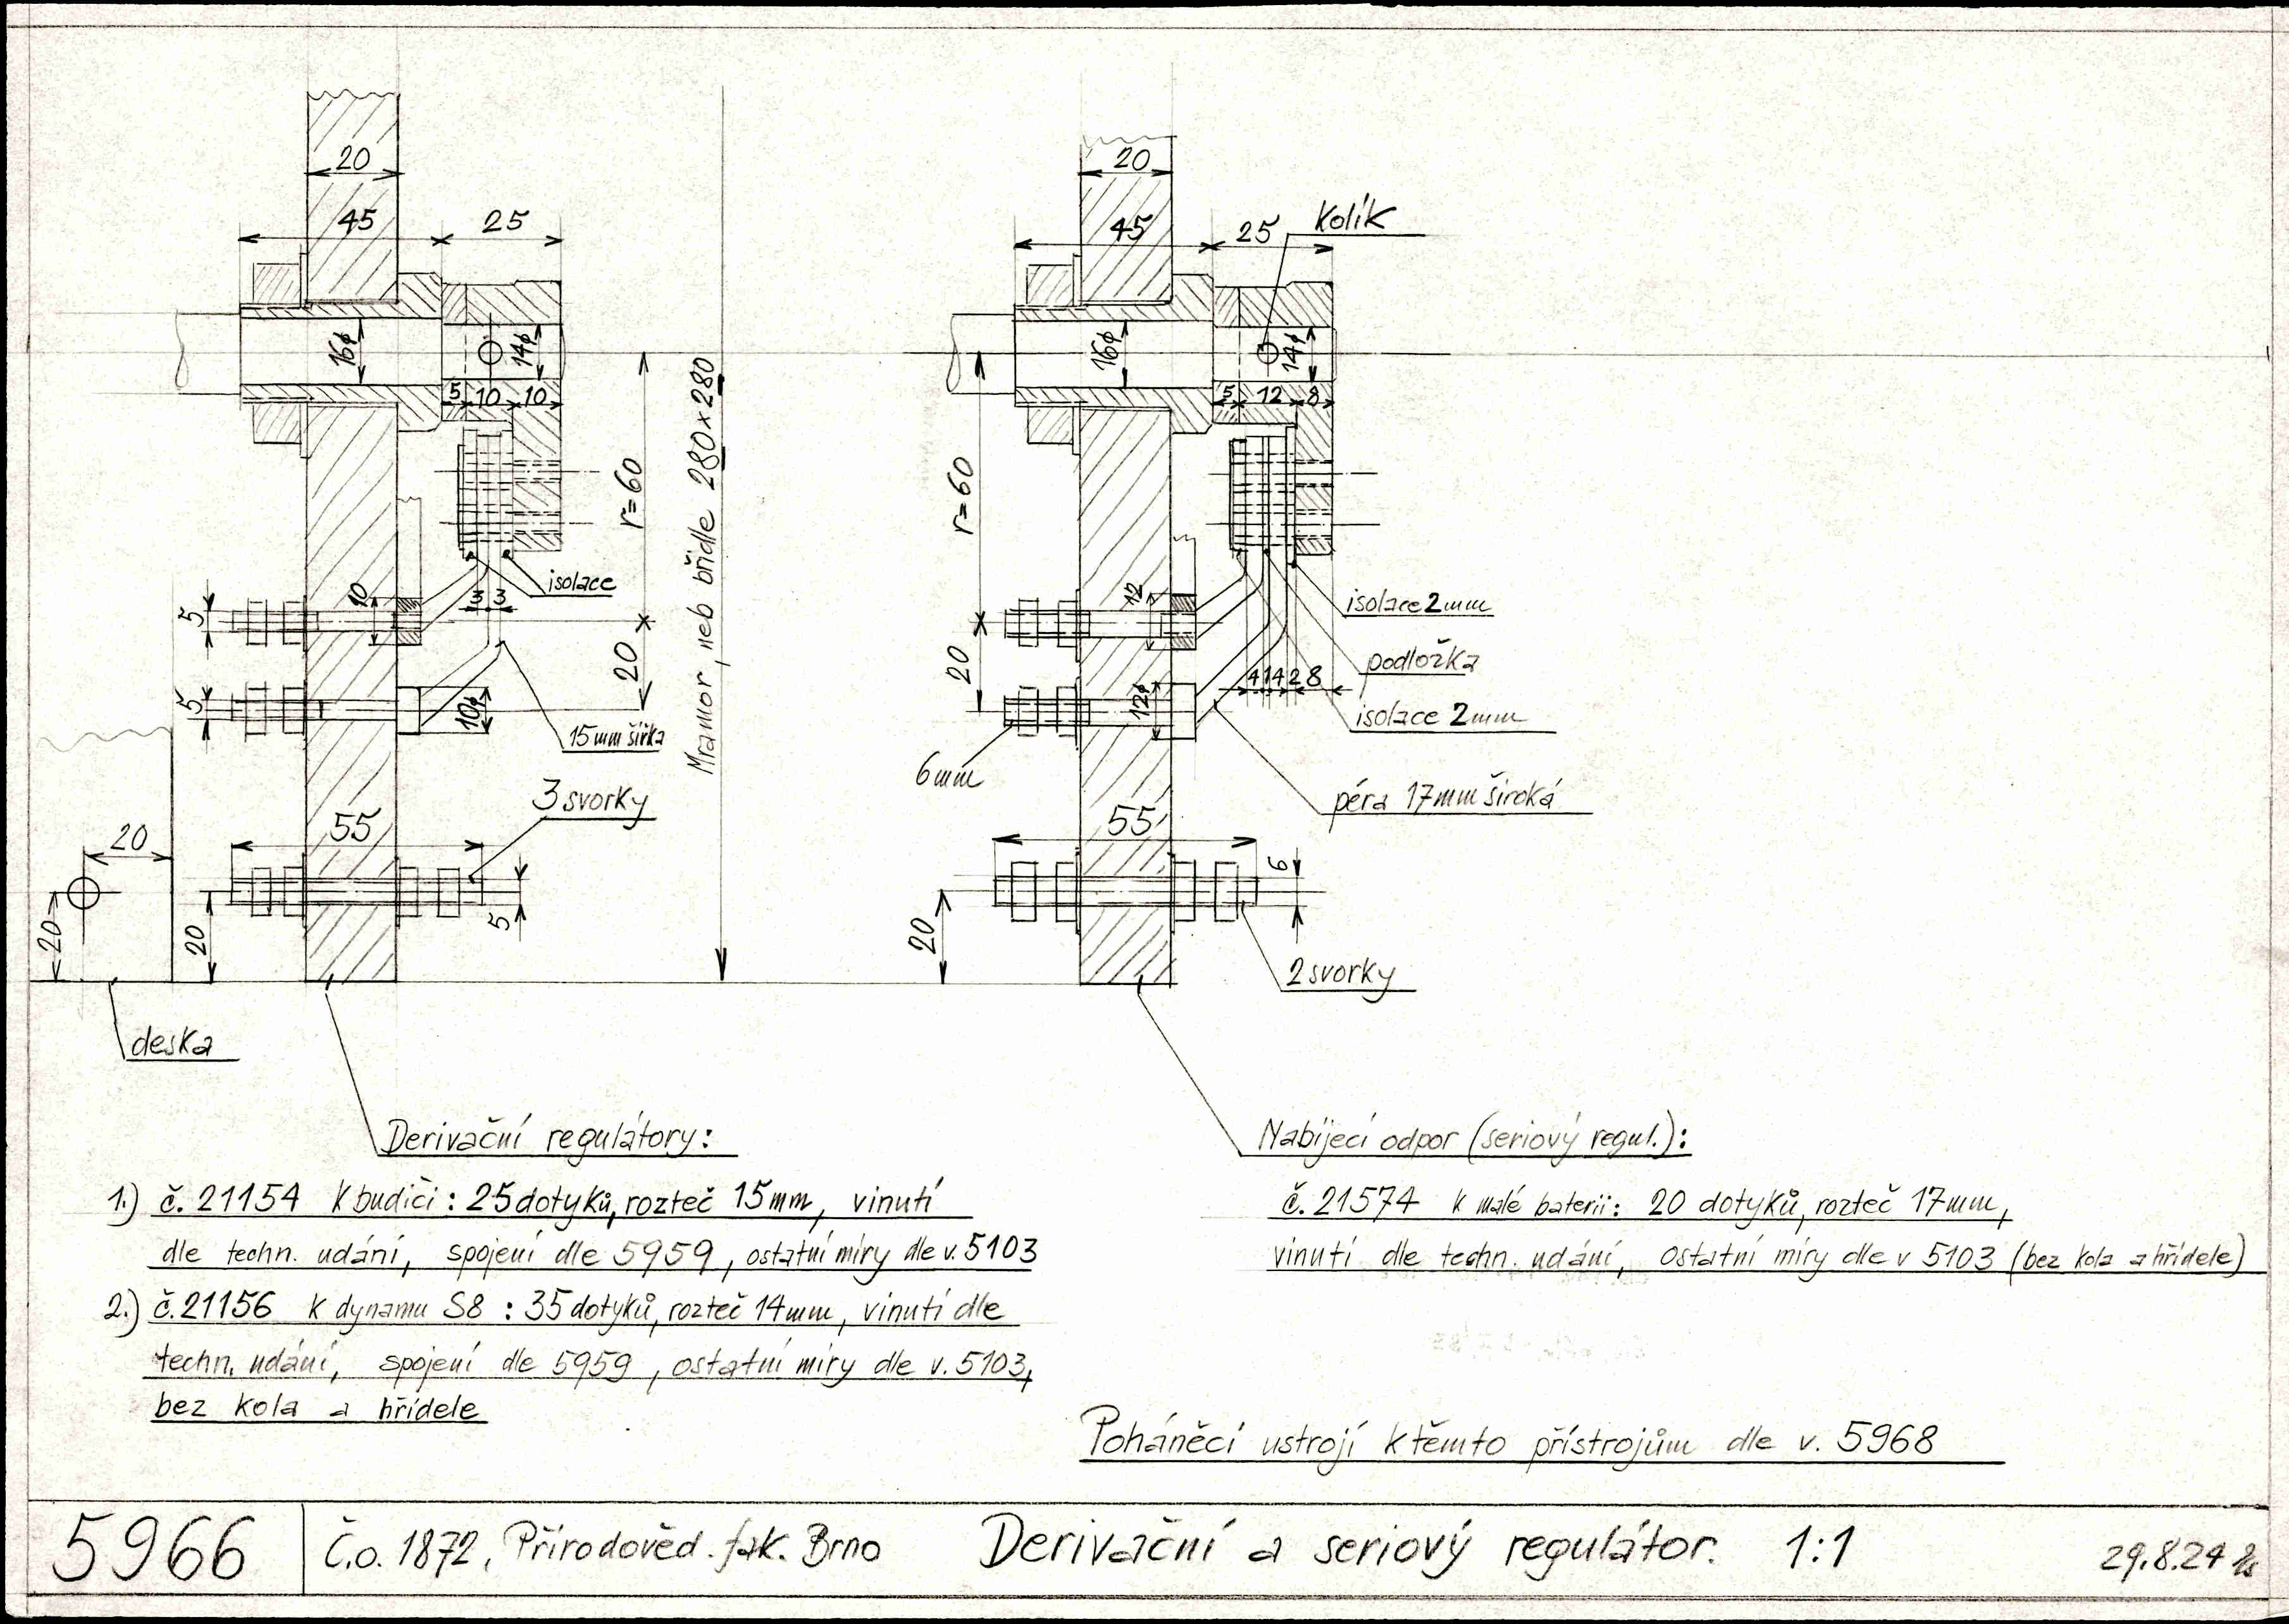 20
45
25
16ϕ
14ϕ
5
10
10
r=60
Mramor, neb břidle 280×280
isolace
3
3
10
5
20
5
10ϕ
15mm šířka
3 svorky
55
20
20
20
5
deska
20
45
25
Kolík
16ϕ
14ϕ
5
12
8
r=60
12
isolace 2mm
podložka
20
4
1
4
2
8
12ϕ
isolace 2mm
6mm
péra 17mm široká
55
6
20
2 svorky
Derivační regulátory:
1.) č. 21154 k budiči: 25 dotyků, rozteč 15mm, vinutí
dle techn. udání, spojení dle 5959, ostatní míry dle v. 5103
2.) č. 21156 k dynamu S8: 35 dotyků, rozteč 14mm, vinutí dle
techn. udání, spojení dle 5959, ostatní míry dle v. 5103,
bez kola a hřídele
Nabíjecí odpor (seriový regul.):
č. 21574 k malé baterii: 20 dotyků, rozteč 17mm,
vinutí dle techn. udání, ostatní míry dle v 5103 (bez kola a hřídele)
Poháněcí ustrojí k těmto přístrojům dle v. 5968
5966
Č.o. 1872, Přírodověd. fak. Brno
Derivační a seriový regulátor. 1:1
29.8.24